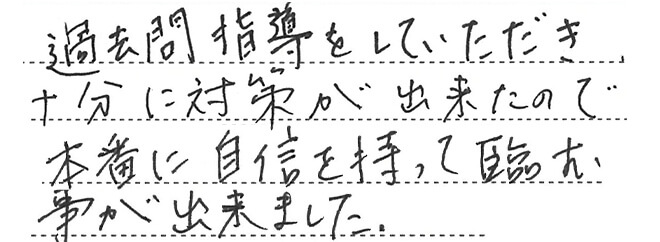 過去問指導をしていただき、
十分に対策が出来たので
本番に自信を持って臨む
事が出来ました.